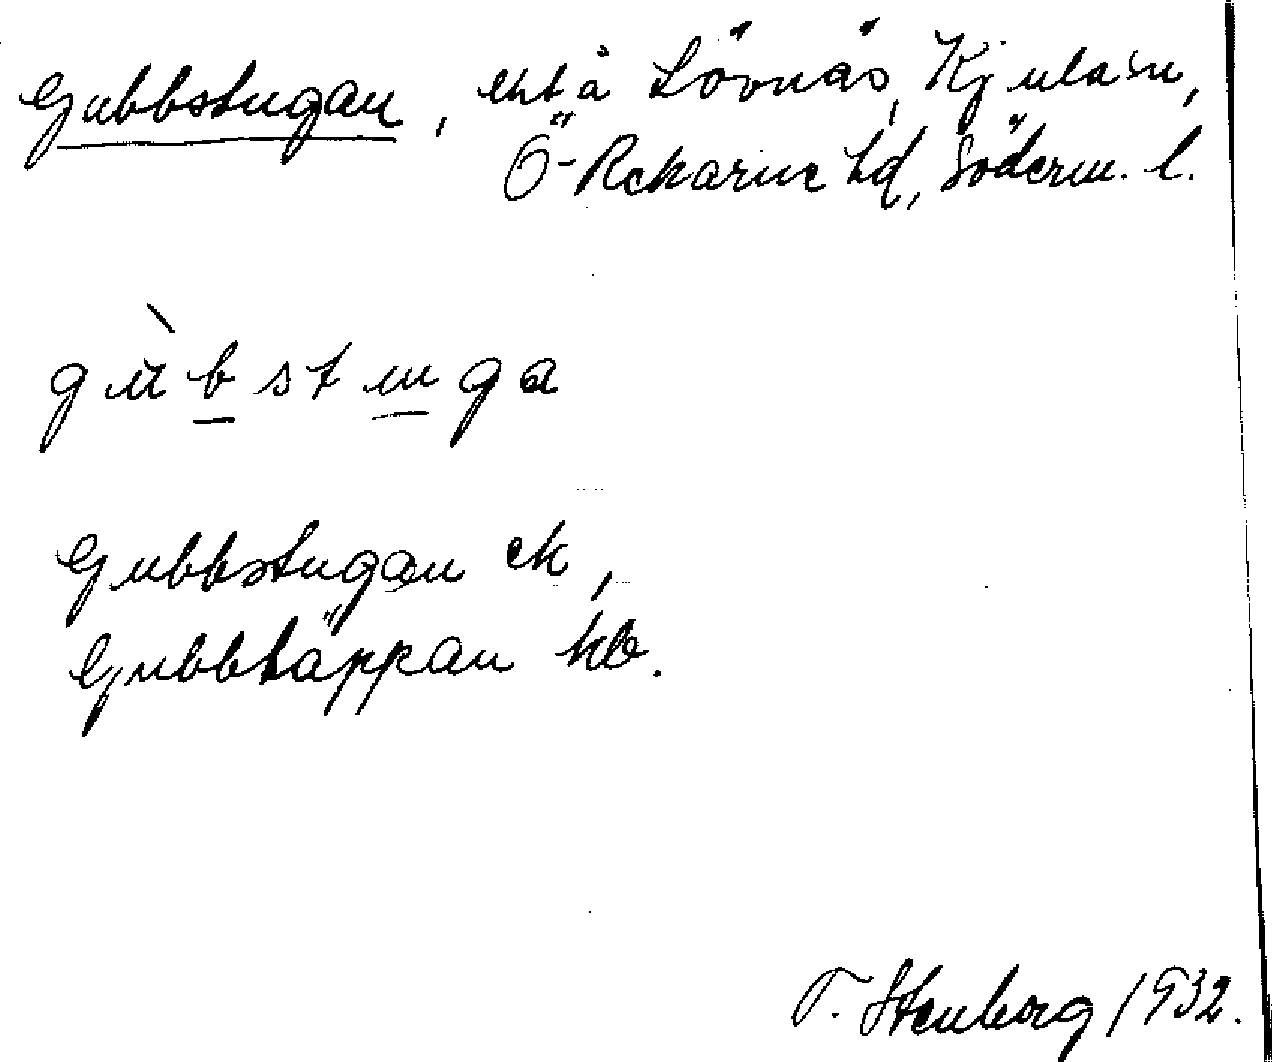 Gubbstugan, lht å Lövnäs, Kjula sn,
Ö-Rekarne hd, Söderm. l.
gu̇̀bstuga
Gubbstugan ek,
Gubbtäppan hb.
T. Stenborg 1932.